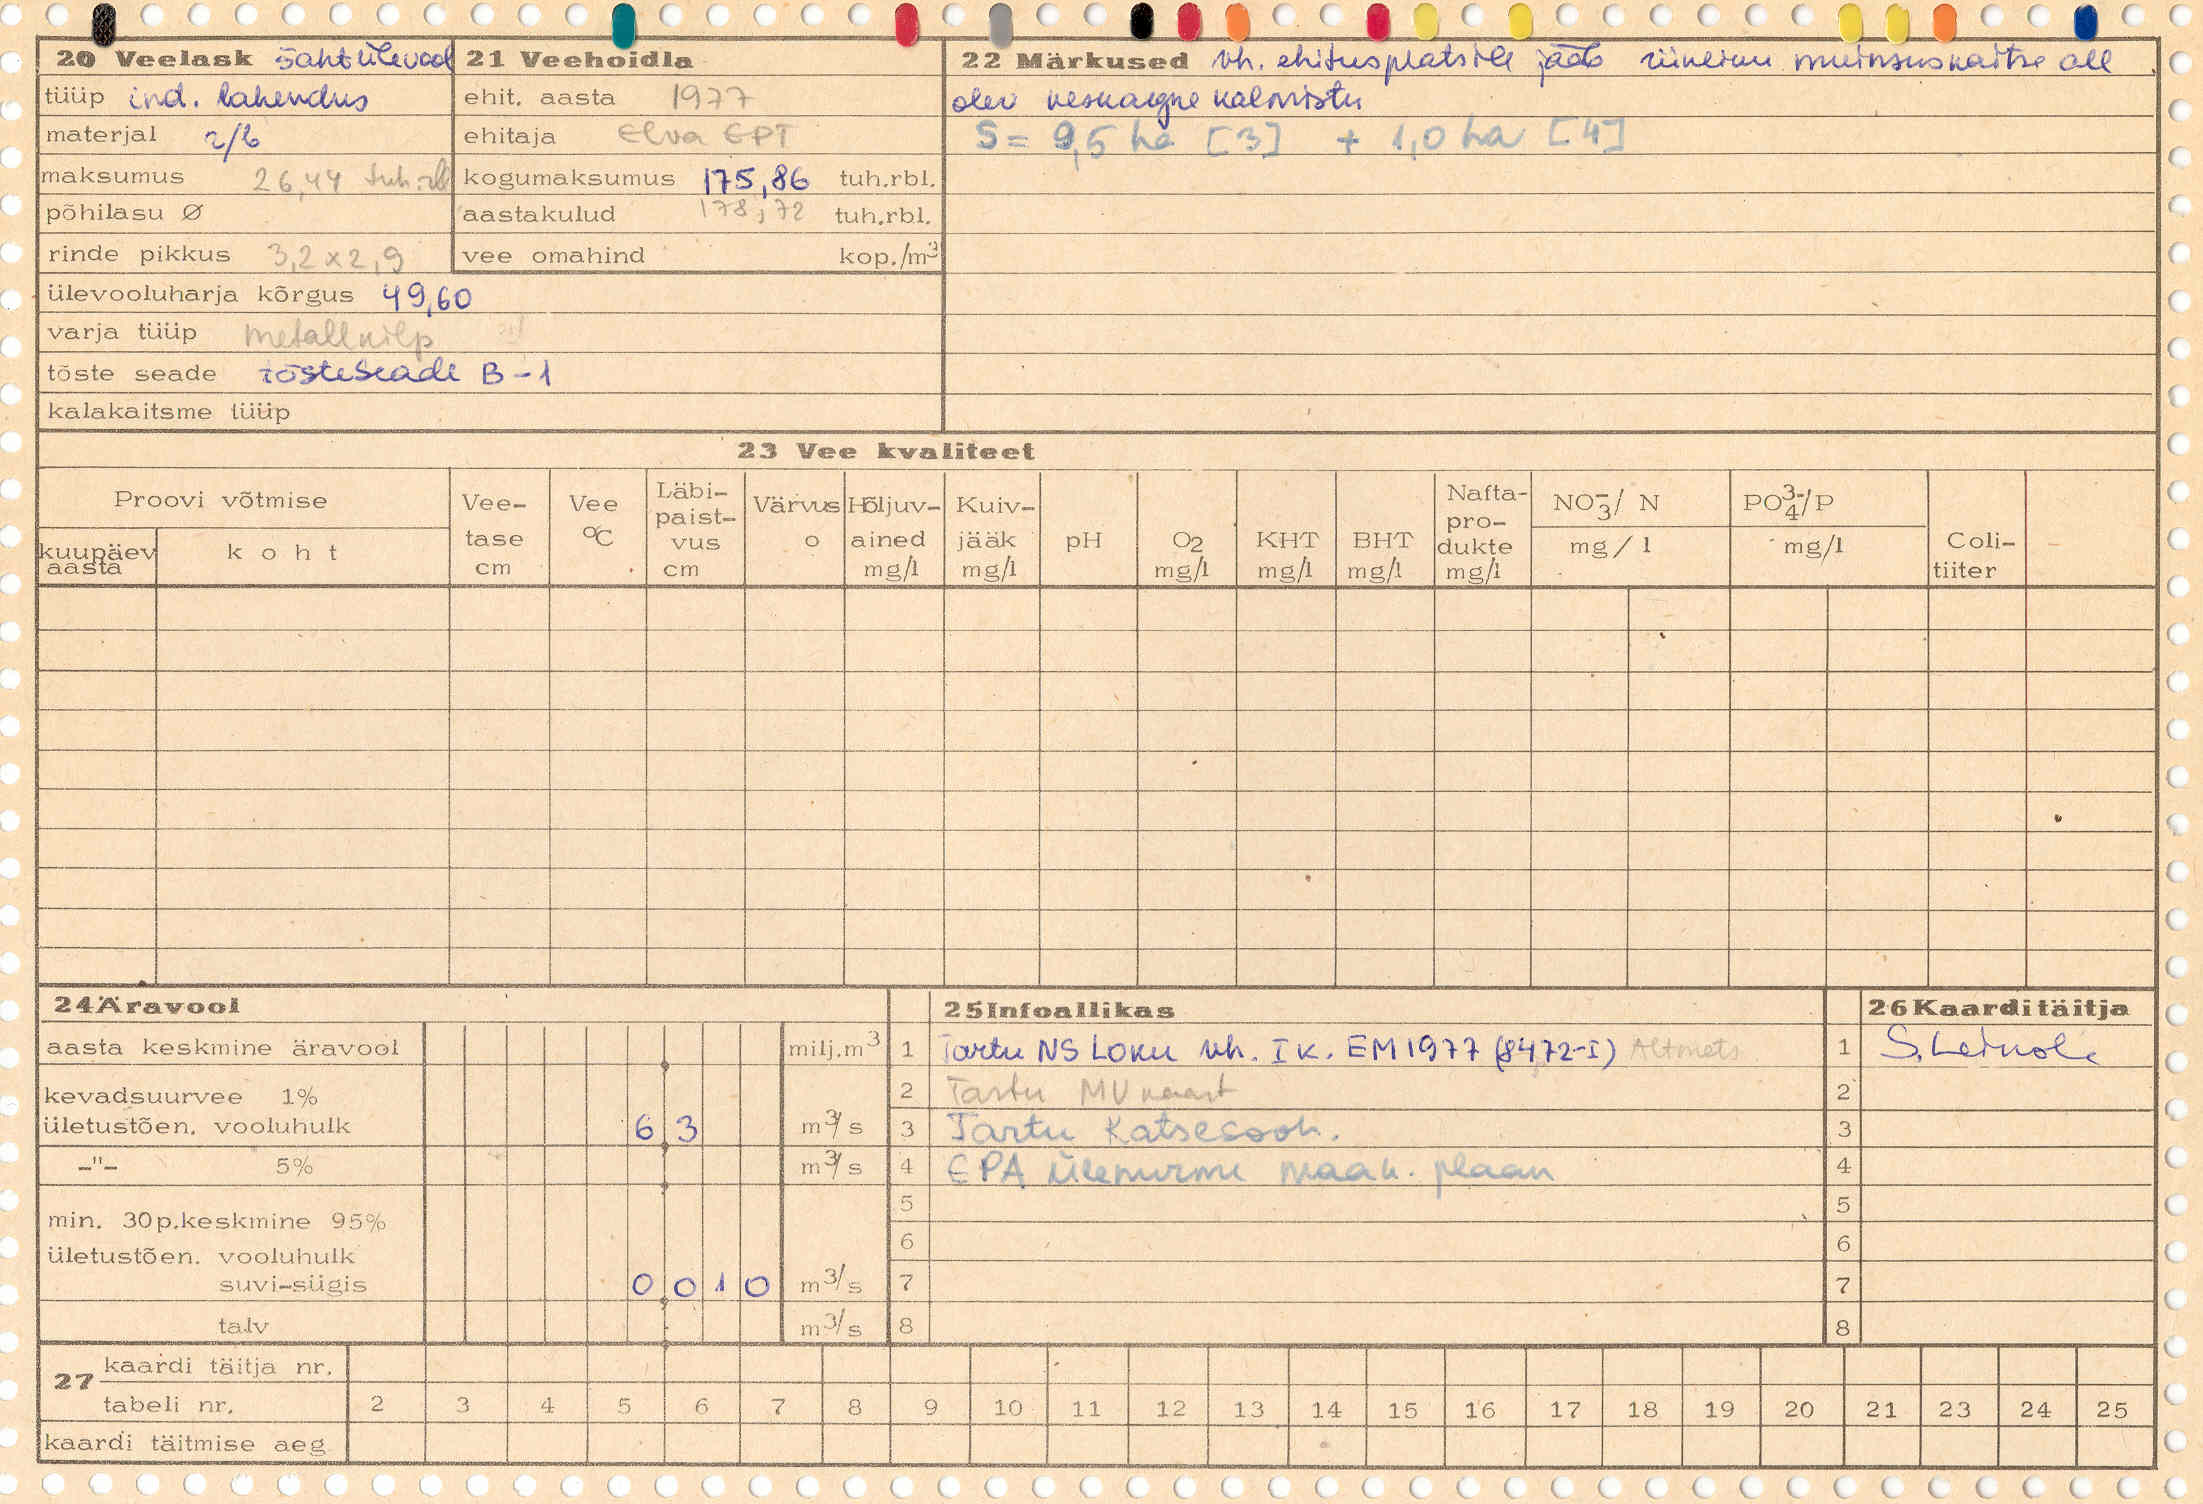 20 Veelask šahtülevool
tüüp ind. lahendus
materjal r/b
maksumus 26,44 tuh.rbl
põhilasu Ø
rinde pikkus 3,2 x 2,9
ülevooluharja kõrgus 49,60
varja tüüp metallkilp
tõste seade tõsteseade B-1
kalakaitsme tüüp
21 Veehoidla
ehit. aasta 1977
ehitaja Elva EPT
kogumaksumus 175,86 tuh.rbl.
aastakulud 178,72 tuh.rbl.
vee omahind kop./m³
22 Märkused vh. ehitusplatsile jääb riikliku muinsuskaitse all
olev keskaegne kalmistu
S = 9,5 ha [3] + 1,0 ha [4]
23 Vee kvaliteet
Proovi võtmise
kuupäev
aasta
koht
Vee-
tase
cm
Vee
°C
Läbi-
paist-
vus
cm
Värvus
o
Hõljuv-
ained
mg/l
Kuiv-
jääk
mg/l
pH
O2
mg/l
KHT
mg/l
BHT
mg/l
Nafta-
pro-
dukte
mg/l
NO₃⁻/ N
mg / l
PO₄³⁻/P
mg/l
Coli-
tiiter
24 Äravool
aasta keskmine äravool milj.m³
kevadsuurvee 1%
ületustõen. vooluhulk 6 3 m³/s
-"- 5% m³/s
min. 30p.keskmine 95%
ületustõen. vooluhulk
suvi-sügis 0 0 1 0 m³/s
talv m³/s
25 Infoallikas
1 Tartu NS Loku vh. I k. EM 1977 (8472-I) Altmets
2 Tartu MV kaart
3 Tartu Katsesooh.
4 EPA Ülenurme maak. plaan
5
6
7
8
26 Kaarditäitja
1
2
3
4
5
6
7
8
27 kaardi täitja nr.
tabeli nr. 2 3 4 5 6 7 8 9 10 11 12 13 14 15 16 17 18 19 20 21 23 24 25
kaardi täitmise aeg